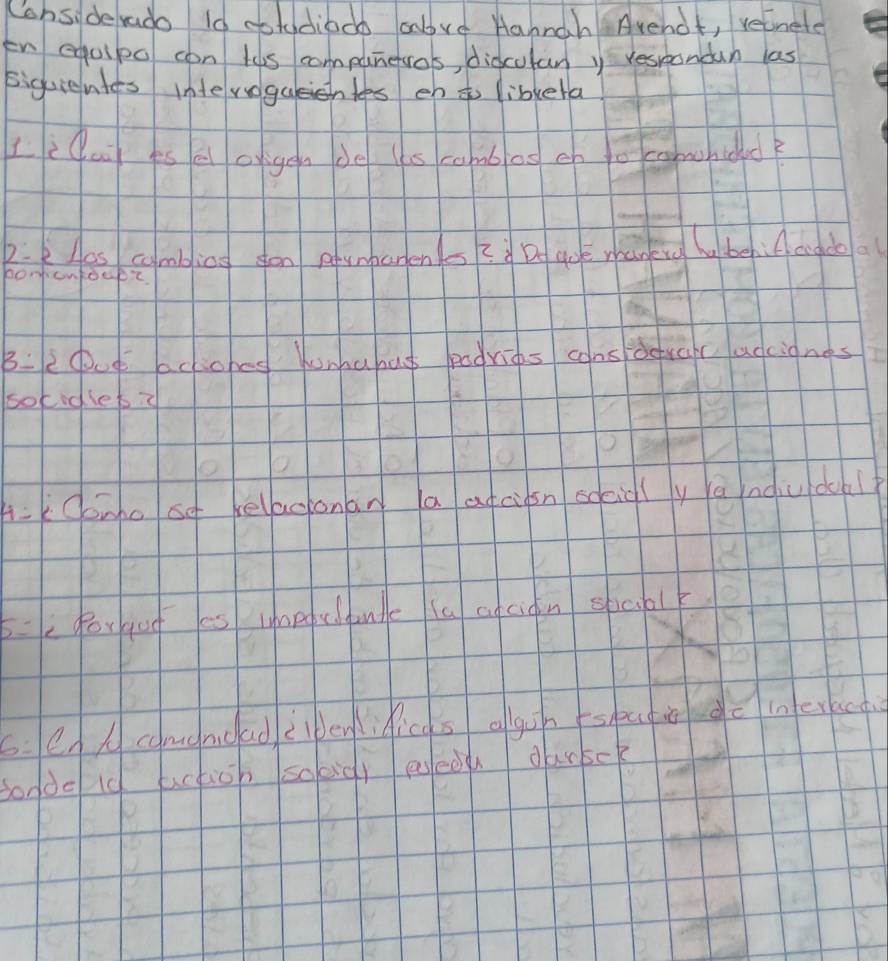 Considerado lo estudiado sobre Hannah Arendt, reúnete
en equipo con tus compañeros, discutan y respondan las
siguientes interrogantes en su libreta
1- ¿Cuál es el origen de los cambios en tu comunidad?
2- ¿Los cambios son permanentes? ¿De qué manera ha benificiado al
comunidad?
3- ¿Qué acciones humanas podrías considerar acciones
sociales?
4- ¿Cómo se relacionan la acción social y la individual?
5- ¿Porqué es importante la acción social?
6- En tu comunidad, ¿identificas algún espacio de interacción
donde la acción social pueda darse?